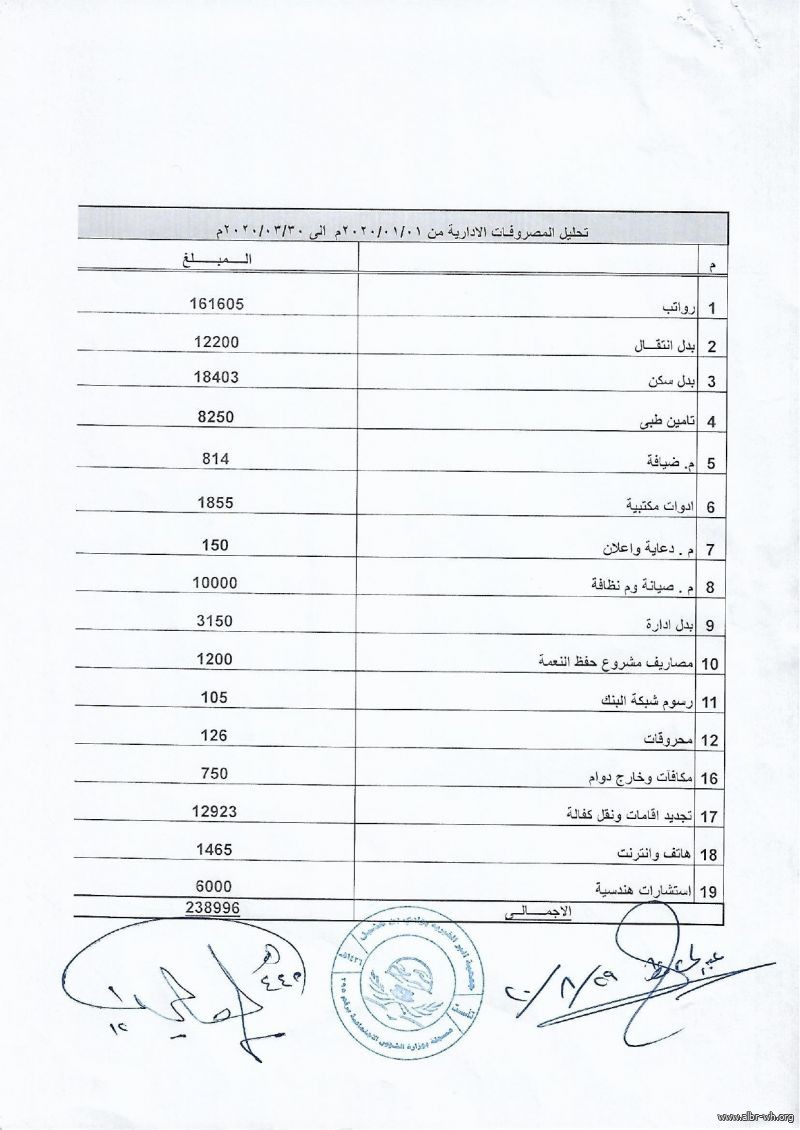 تحليل المصروفات الادارية من ٢٠٢٠/٠١/٠١م الى ٢٠٢٠/٠٣/٣٠م
م المبلغ
1 رواتب 161605
2 بدل انتقال 12200
3 بدل سكن 18403
4 تامين طبى 8250
5 م. ضيافة 814
6 ادوات مكتبية 1855
7 م . دعاية واعلان 150
8 م . صيانة وم نظافة 10000
9 بدل ادارة 3150
10 مصاريف مشروع حفظ النعمة 1200
11 رسوم شبكة البنك 105
12 محروقات 126
16 مكافآت وخارج دوام 750
17 تجديد اقامات ونقل كفالة 12923
18 هاتف وانترنت 1465
19 استشارات هندسية 6000
الاجمالى 238996
جمعية البر الخيرية بوادي بن هشبل
مسجلة بوزارة الشؤون الاجتماعية برقم ٢٩٥
www.albr-wh.org